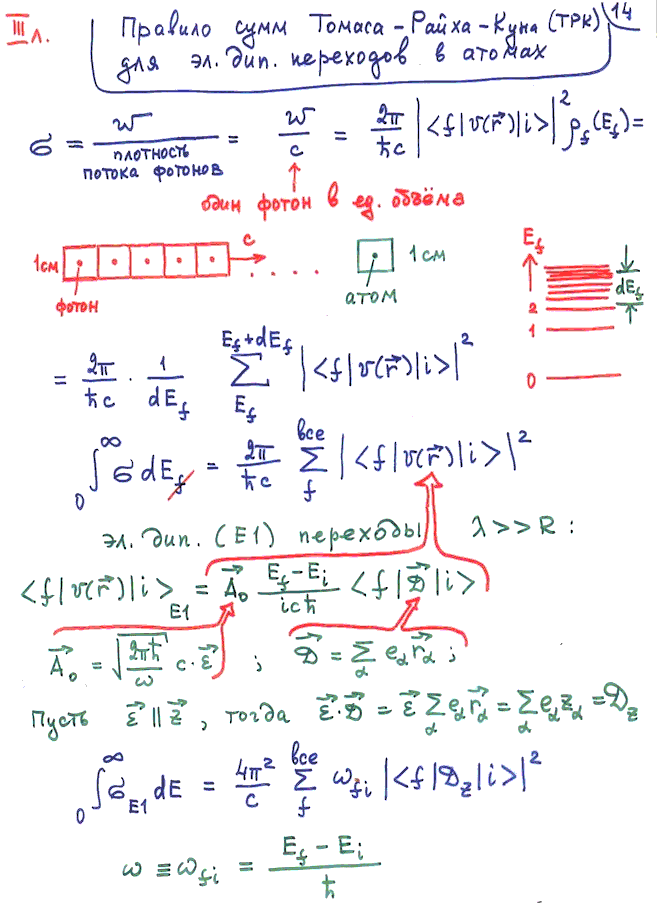 III л.
Правило сумм Томаса-Райха-Куна (ТРК) 14
для эл. дип. переходов в атомах
σ = w / плотность потока фотонов = w/c = 2π/ħc |<f|v(r⃗)|i>|² ρ_f(E_f) =
один фотон в ед. объёма
1см c 1см
фотон атом
E_f
dE_f
2
1
0
= 2π/ħc · 1/dE_f Σ_{E_f}^{E_f+dE_f} |<f|v(r⃗)|i>|²
₀∫^∞ σ dE_f = 2π/ħc Σ_f^{все} |<f|v(r⃗)|i>|²
эл. дип. (E1) переходы λ>>R:
<f|v(r⃗)|i>_{E1} = A⃗₀ (E_f-E_i)/(icħ) <f|D⃗|i>
A⃗₀ = √(2πħ/ω) c·ε⃗ ; D⃗ = Σ_α e_α r⃗_α ;
Пусть ε⃗ || z⃗, тогда ε⃗·D⃗ = ε⃗ Σ_α e_α r⃗_α = Σ_α e_α z_α = D_z
₀∫^∞ σ_{E1} dE = 4π²/c Σ_f^{все} ω_{fi} |<f|D_z|i>|²
ω ≡ ω_{fi} = (E_f - E_i)/ħ